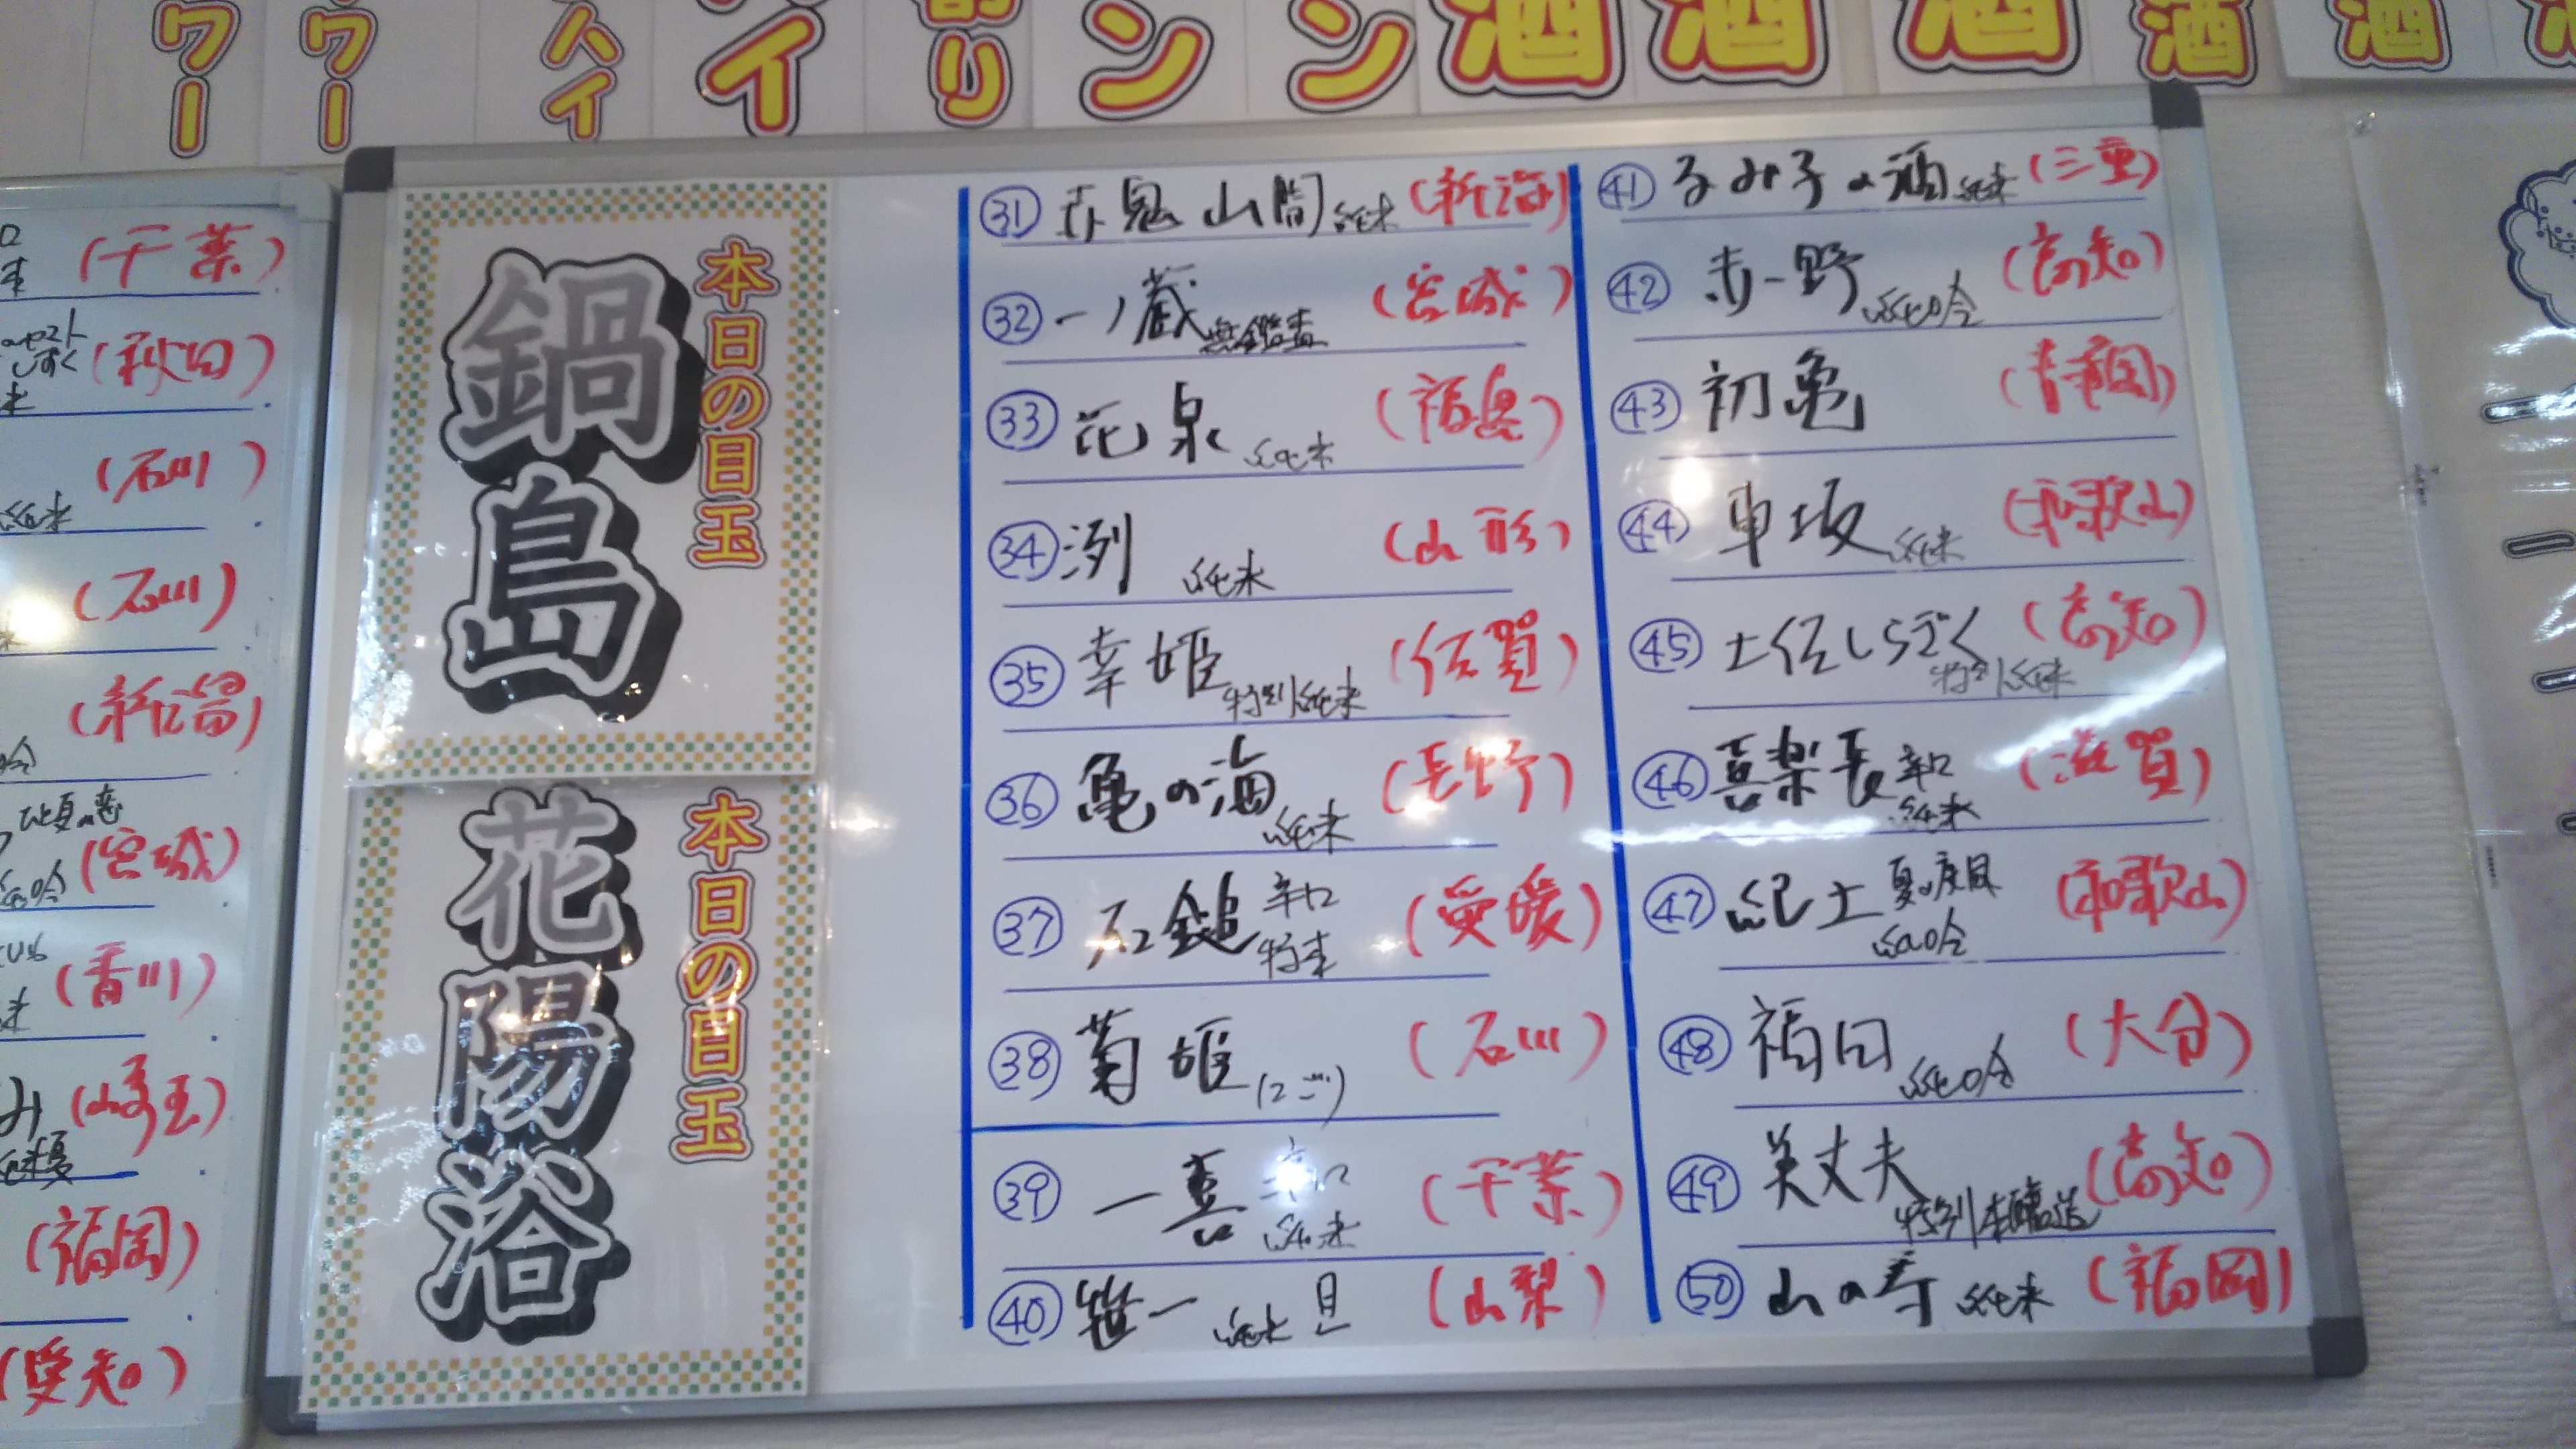 ワー
ワー
ハイ
イ
割り
ン
ン
酒
酒
酒
酒
酒
(千葉)
(秋田)
しずく
(石川)
純米
(石川)
(新潟)
ひと夏の恋
(宮城)
純吟
(香川)
み (埼玉)
(福岡)
(愛知)
本日の目玉
鍋島
本日の目玉
花陽浴
㉛ 山間 純米 (新潟)
㉜ 一ノ蔵 無鑑査 (宮城)
㉝ 花泉 純米 (福島)
㉞ 洌 純米 (山形)
㉟ 幸姫 特別純米 (佐賀)
㊱ 亀の海 純米 (長野)
㊲ 石鎚 辛口 (愛媛)
㊳ 菊姫 (にごり) (石川)
㊴ 一喜 辛口 純米 (千葉)
㊵ 笹一 純米 (山梨)
㊶ るみ子の酒 純米 (三重)
㊷ 赤野 純吟 (高知)
㊸ 初亀 (静岡)
㊹ 車坂 純米 (和歌山)
㊺ 土佐しらぎく 特別純米 (高知)
㊻ 喜楽長 辛口 純米 (滋賀)
㊼ 紀土 夏の疾風 純吟 (和歌山)
㊽ 福田 純吟 (大分)
㊾ 美丈夫 特別本醸造 (高知)
㊿ 山の寿 純米 (福岡)